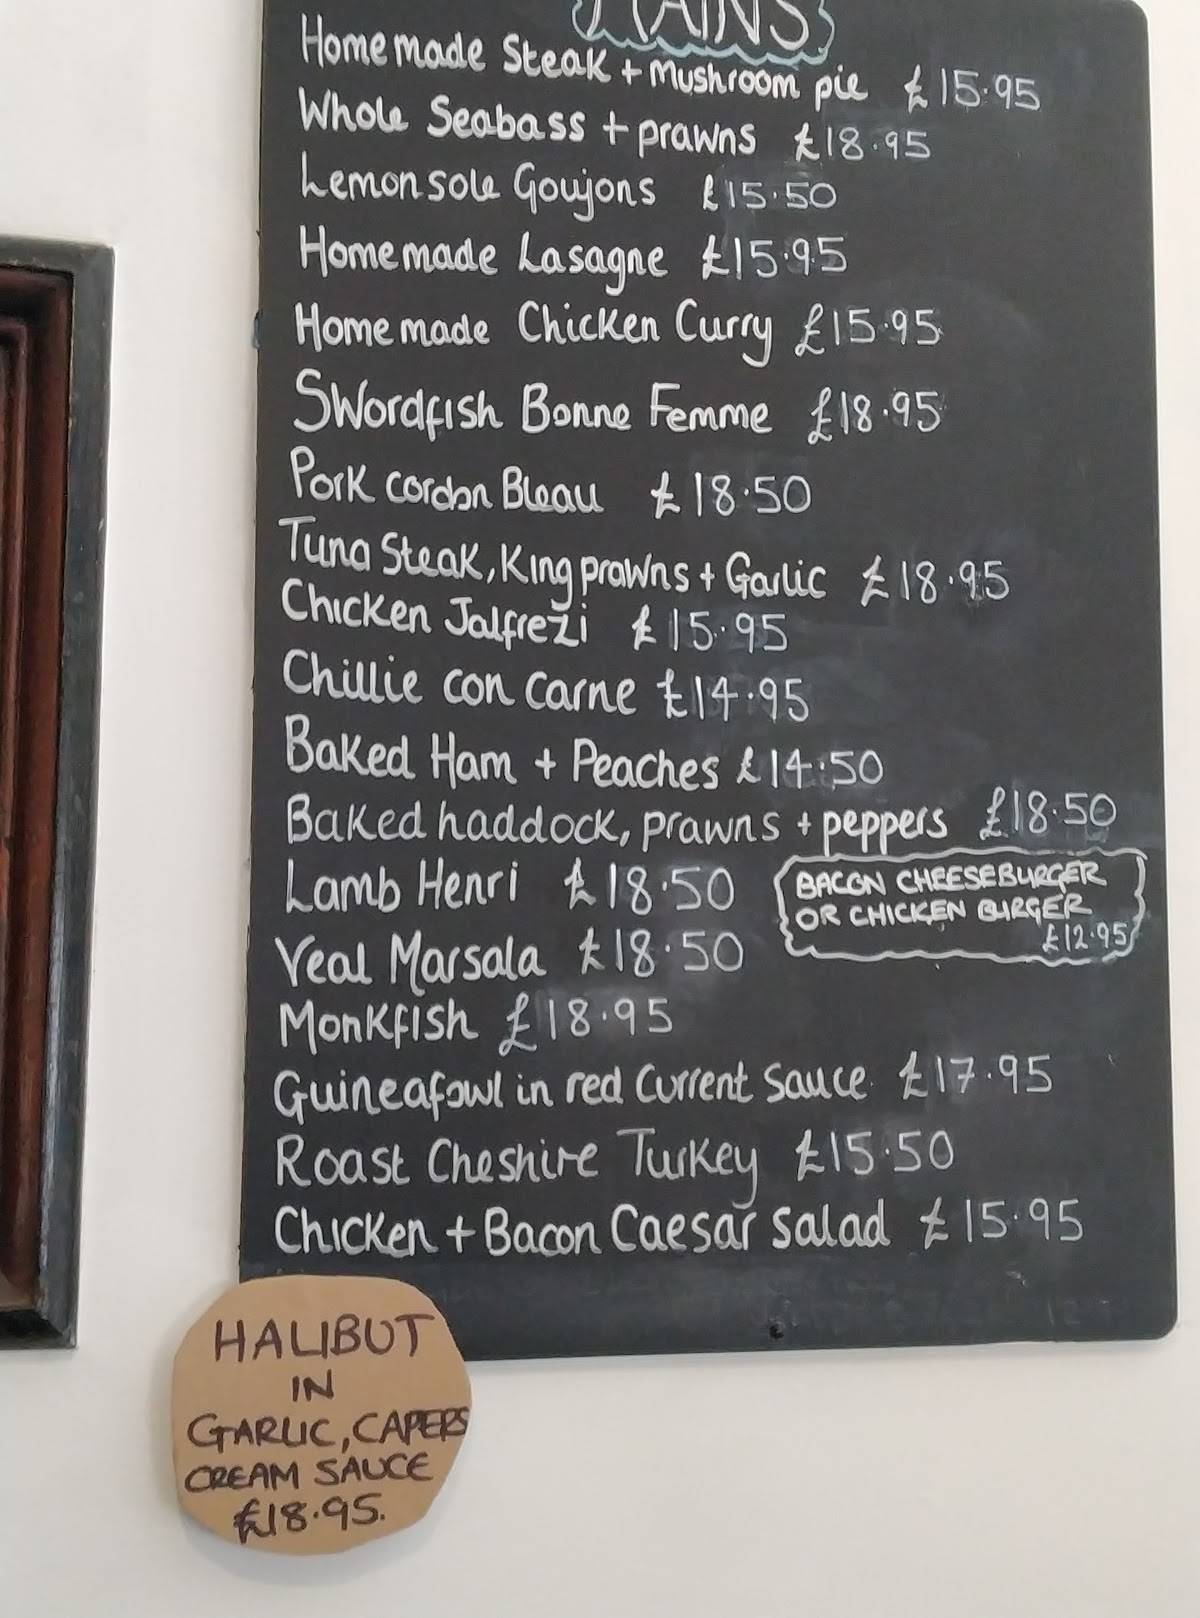 MAINS
Homemade Steak + Mushroom pie £15.95
Whole Seabass + prawns £18.95
Lemon sole Goujons £15.50
Homemade Lasagne £15.95
Homemade Chicken Curry £15.95
Swordfish Bonne Femme £18.95
Pork cordon Bleau £18.50
Tuna Steak, King prawns + Garlic £18.95
Chicken Jalfrezi £15.95
Chillie con carne £14.95
Baked Ham + Peaches £14.50
Baked haddock, prawns + peppers £18.50
Lamb Henri £18.50
BACON CHEESEBURGER
OR CHICKEN BURGER
£12.95
Veal Marsala £18.50
Monkfish £18.95
Guineafowl in red Current Sauce £17.95
Roast Cheshire Turkey £15.50
Chicken + Bacon Caesar Salad £15.95
HALIBUT
IN
GARLIC, CAPERS
CREAM SAUCE
£18.95.